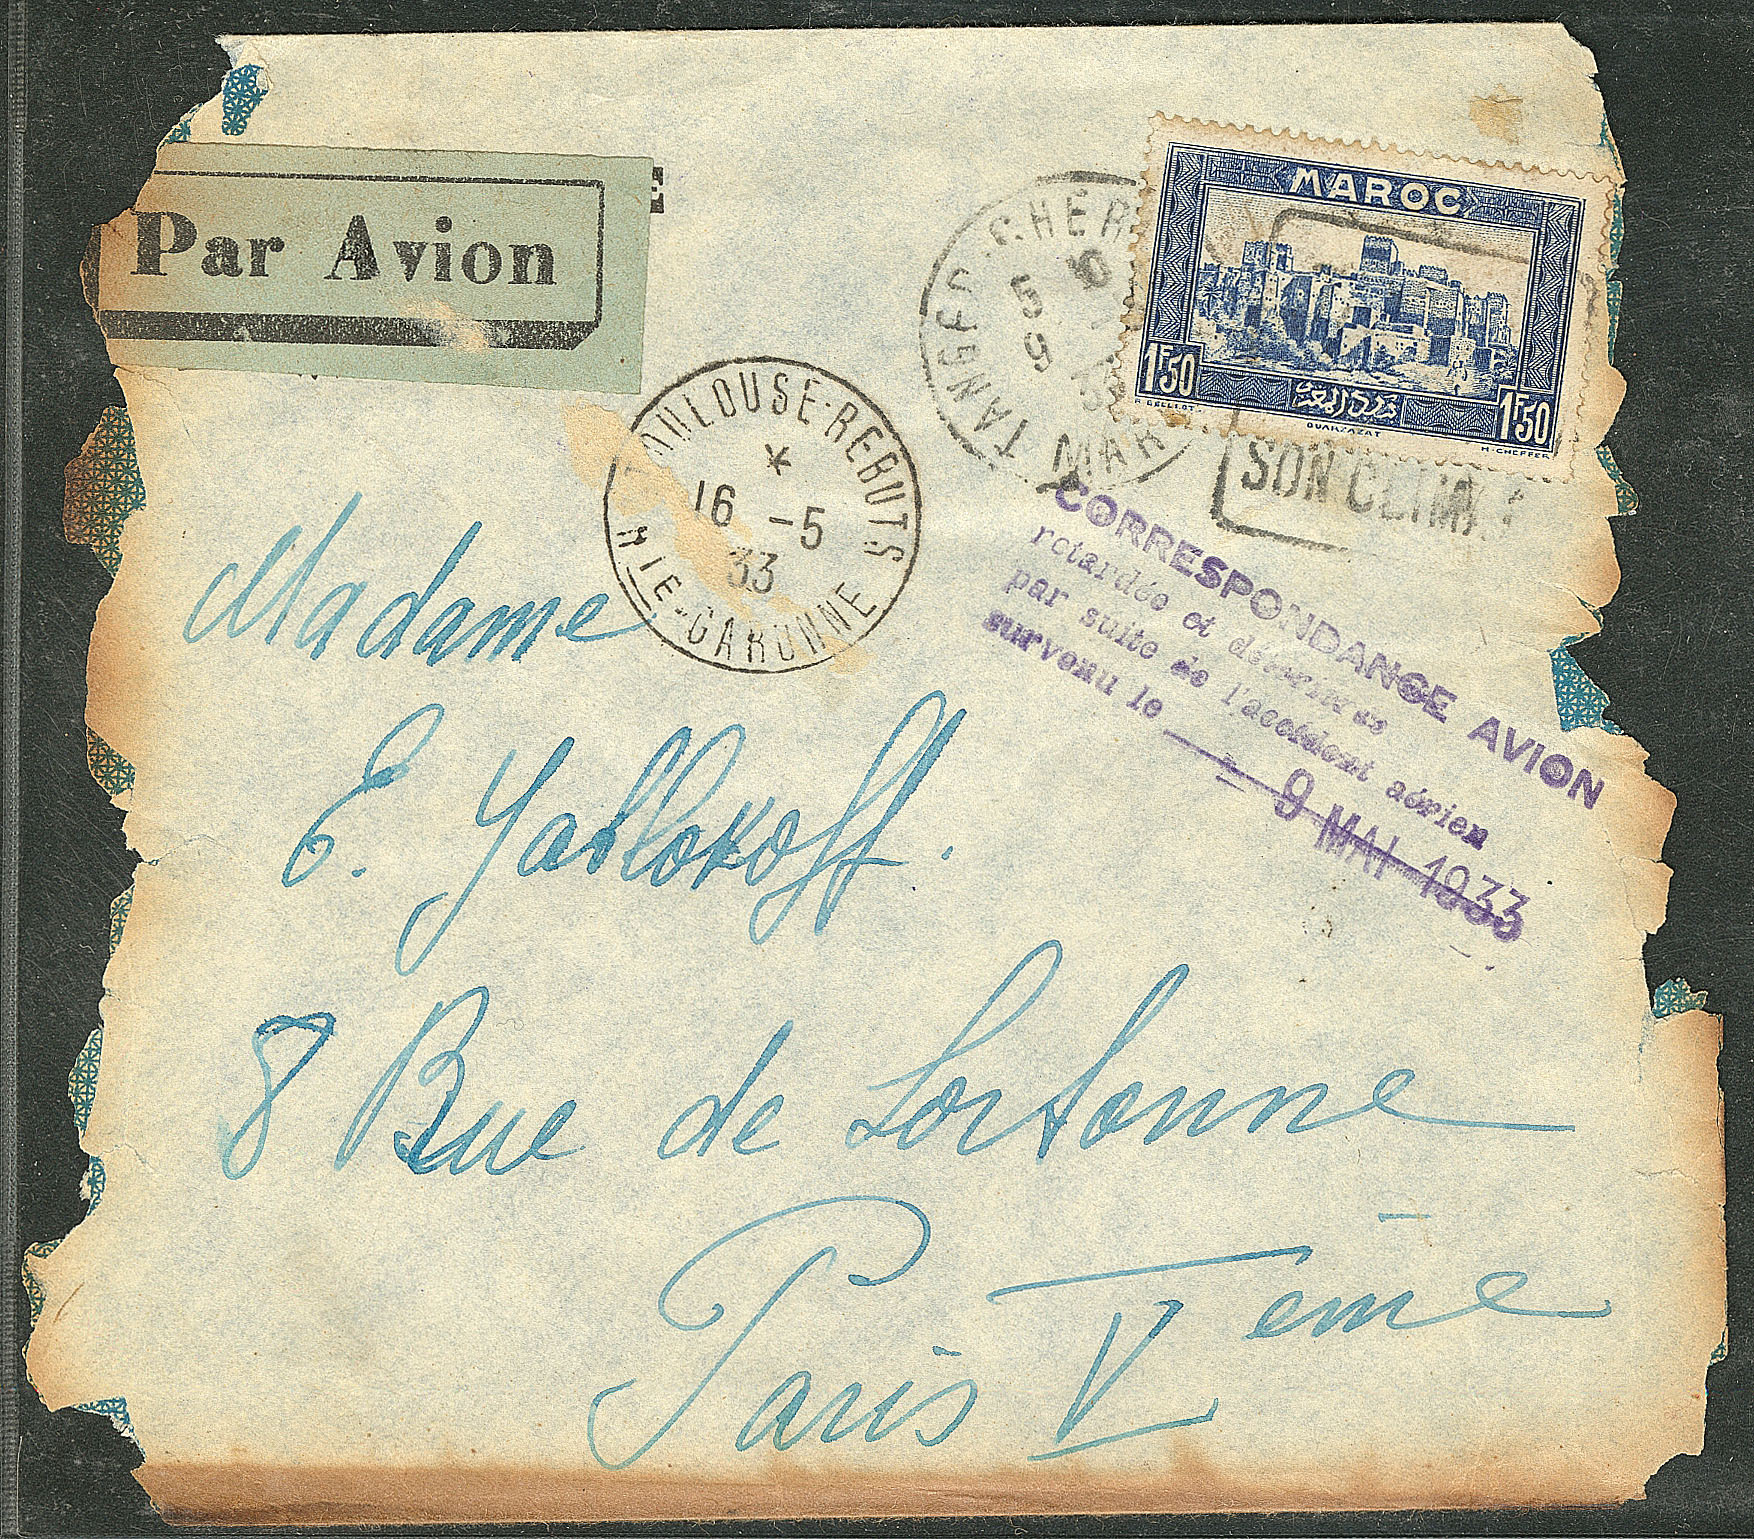 Par Avion
E
TOULOUSE-REBUTS
*
16 -5
33
HTE-GARONNE
TANGER-CHER
5
9 33
MAR
MAROC
1F50 1F50
OUARZAZAT
H·CHEFFER
SON CLIM
CORRESPONDANCE AVION
retardée et
par suite de l'accident aérien
survenu le
- 9 MAI 1933
Madame
E. Yablokoff.
8 Rue de Sorbonne
Paris V ème